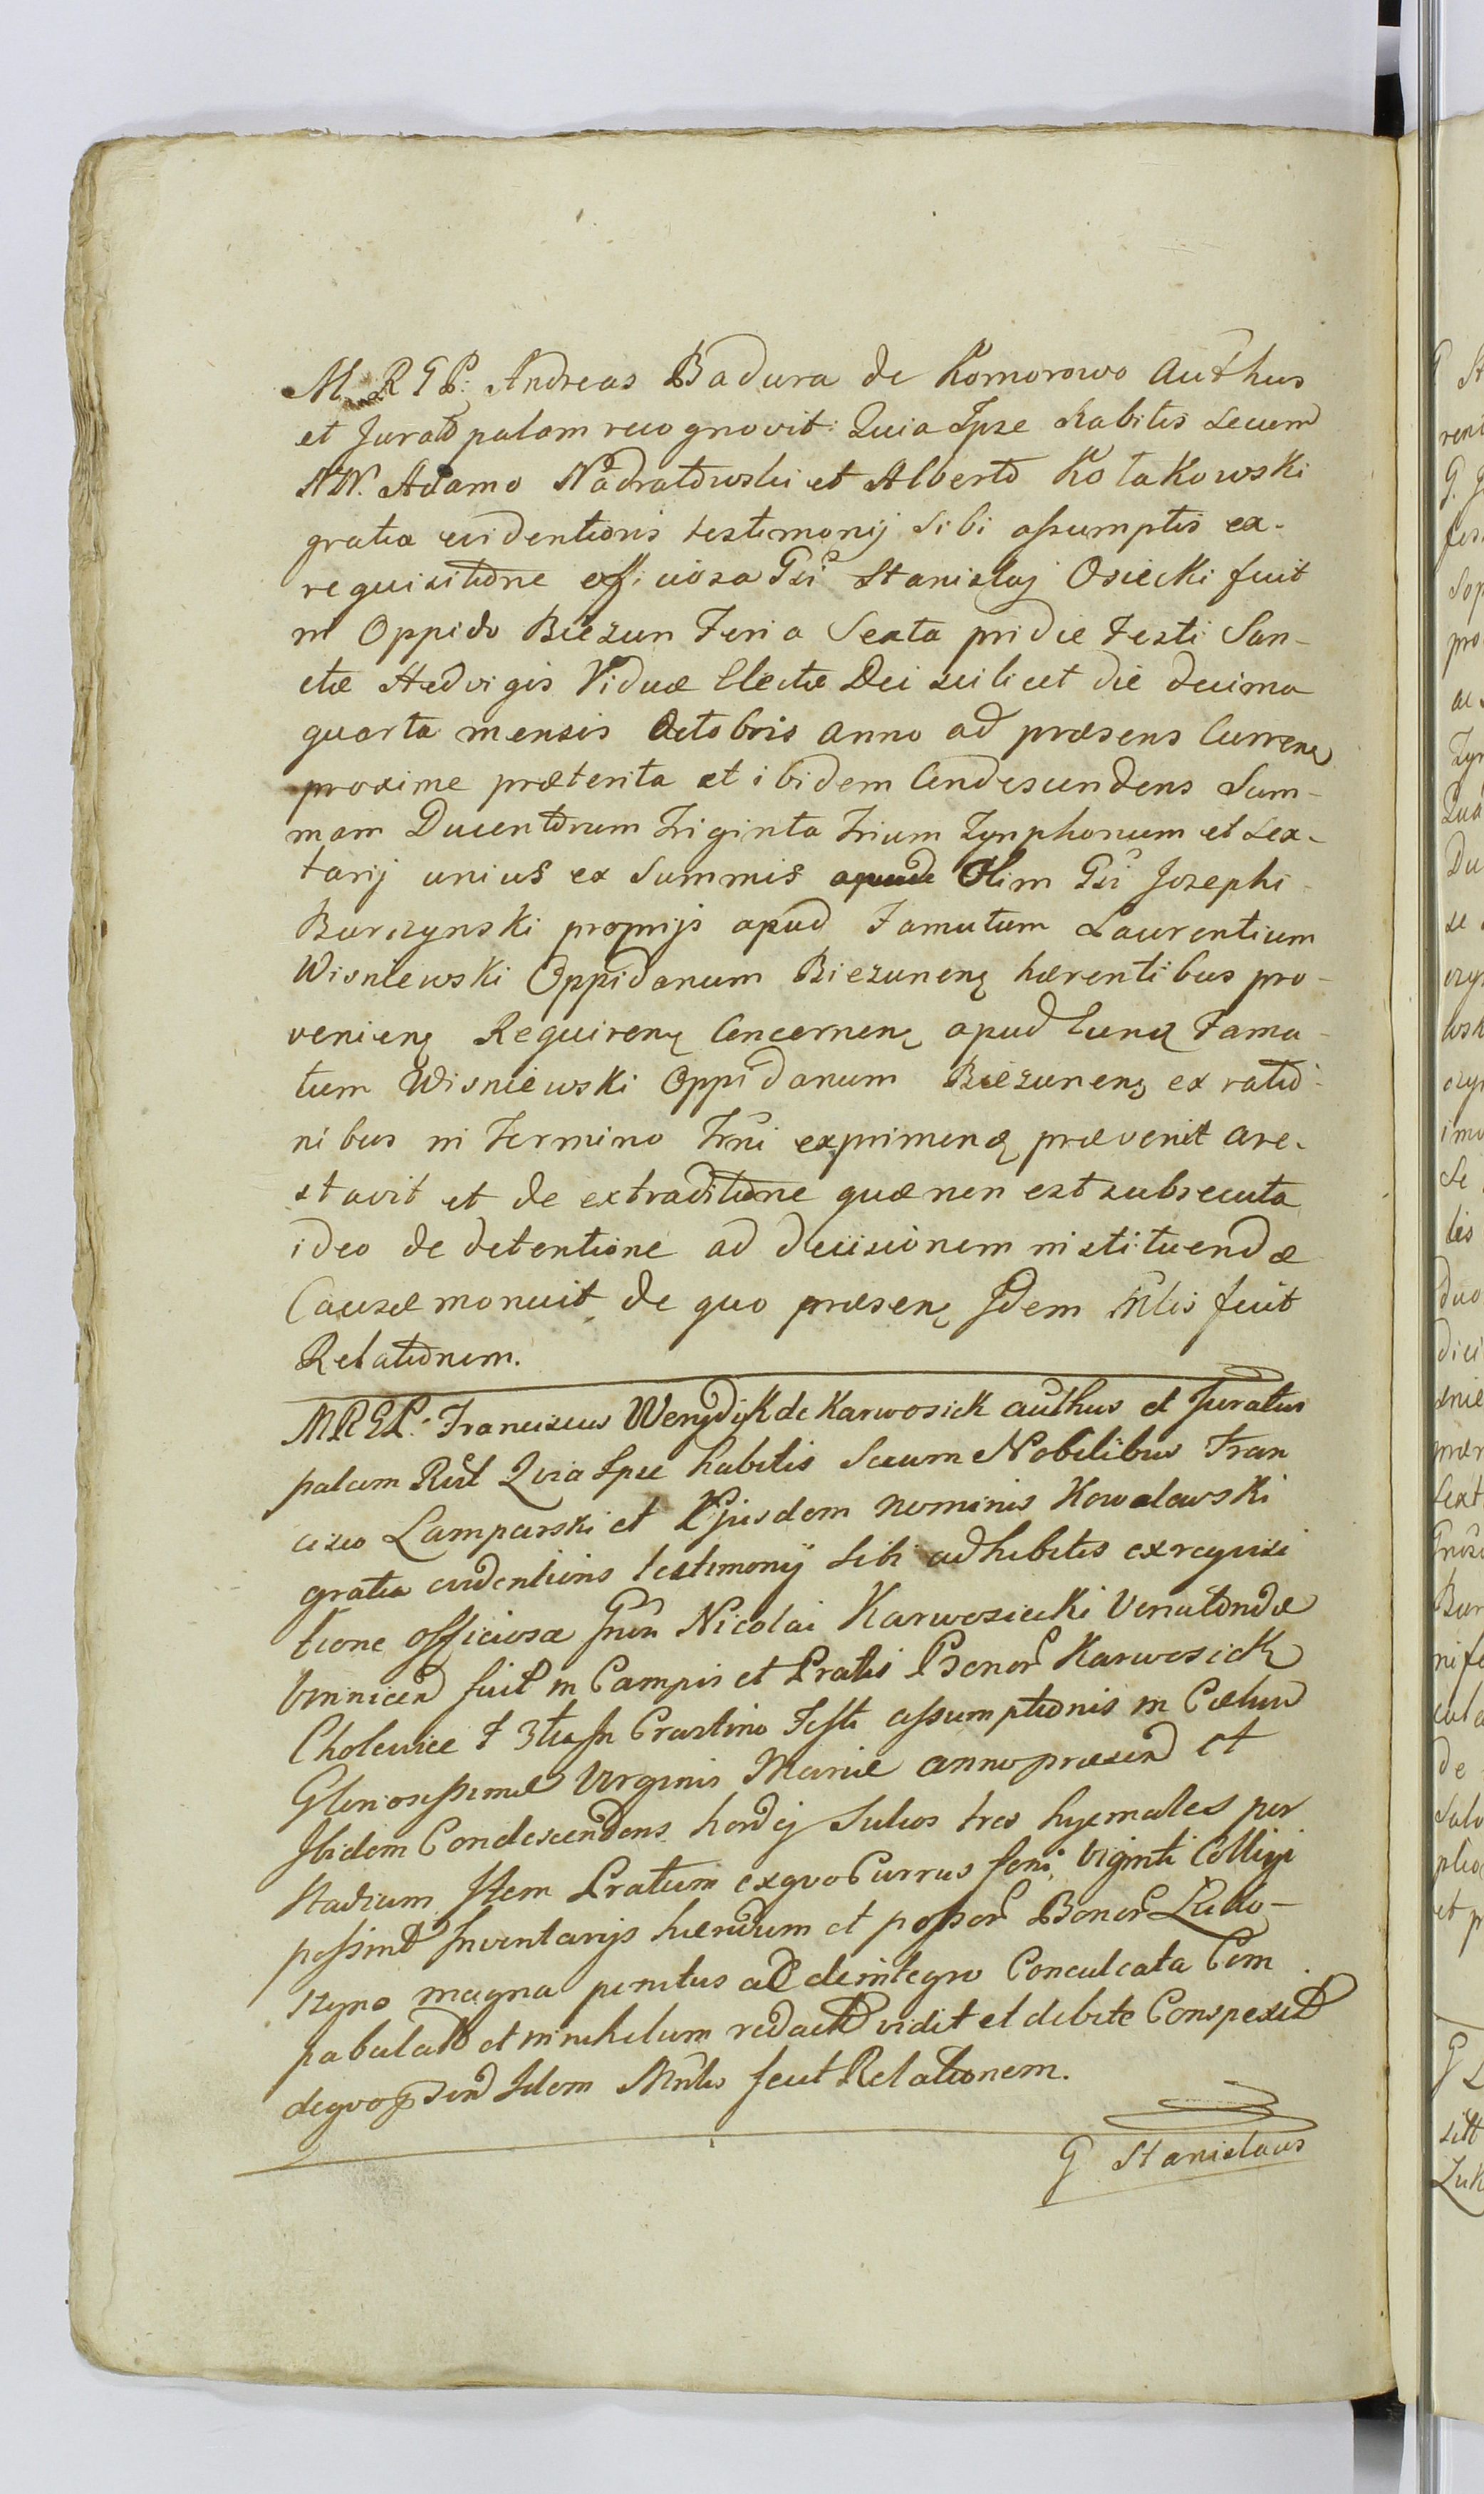 M. R. G L: Andreas Badura de Komorowo Authus
et Jurato palam recognovit: Quia Ipse habitis secum
NN. Adamo Nadratowski et Alberto Kołakowski
gratia evidentioris testimonij sibi assumptis ex-
requisitione officiosa Gsi Stanislaj Osiecki fuit
in Oppido Biezun Feria Sexta pridie Festi San-
ctæ Hedvigis Viduæ Electæ Dei scilicet die decima
quarta mensis Octobris Anno ad præsens Curren
proxime præterita et ibidem Condescendens Sum-
mam Ducentorum Triginta Trium Tynphonum et sex-
tarij unius ex Summis Olim Gsi Josephi
Burczynski proprijs apud Famatum Laurentium
Wisniewski Oppidanum Biezunen hærentibus pro-
venien Requiren Concernen apud Eund Fama-
tum Wisniewski Oppidanum Biezunen ex ratio-
nibus in Termino Trni exprimend prævenit are-
stavit et de extraditione quæ non est subsecuta
ideo de detentione ad decisionem instituendæ
Causæ monuit, de quo præsen Idem Mlis fecit
Relationem.
M R G L: Franciscus Werydyk de Karwosiek authus et Juratus
palam Rcit Quia Ipse habitis Secum Nobilibus Fran
cisco Lamparski et Ejusdem nominis Kowalewski
gratia evidentioris testimonij sibi adhibitis ex requisi
tione officiosa Nicolai Karwosiecki Venatoridæ
fuit in Campis et Pratis Bonor Karwosiek
Cholewice F 3tia In Crastino Festi assumptionis in Cælum
Gloriosissimæ Virginis Mariæ anno præsen et
Ibidem Condescendens hordej Sulcos tres hyemales per
Stadium Item Pratum ex quo Currus feni viginti Colligi
possint Inventarijs hæredum et possor Bonor Lutto-
szyno magna penitus ac de integro Conculcata Com
pabulato et in nihilum redacto vidit et debite Conspexit
de quo psen Idem Mnlis fecit Relationem.
G Stanislaus